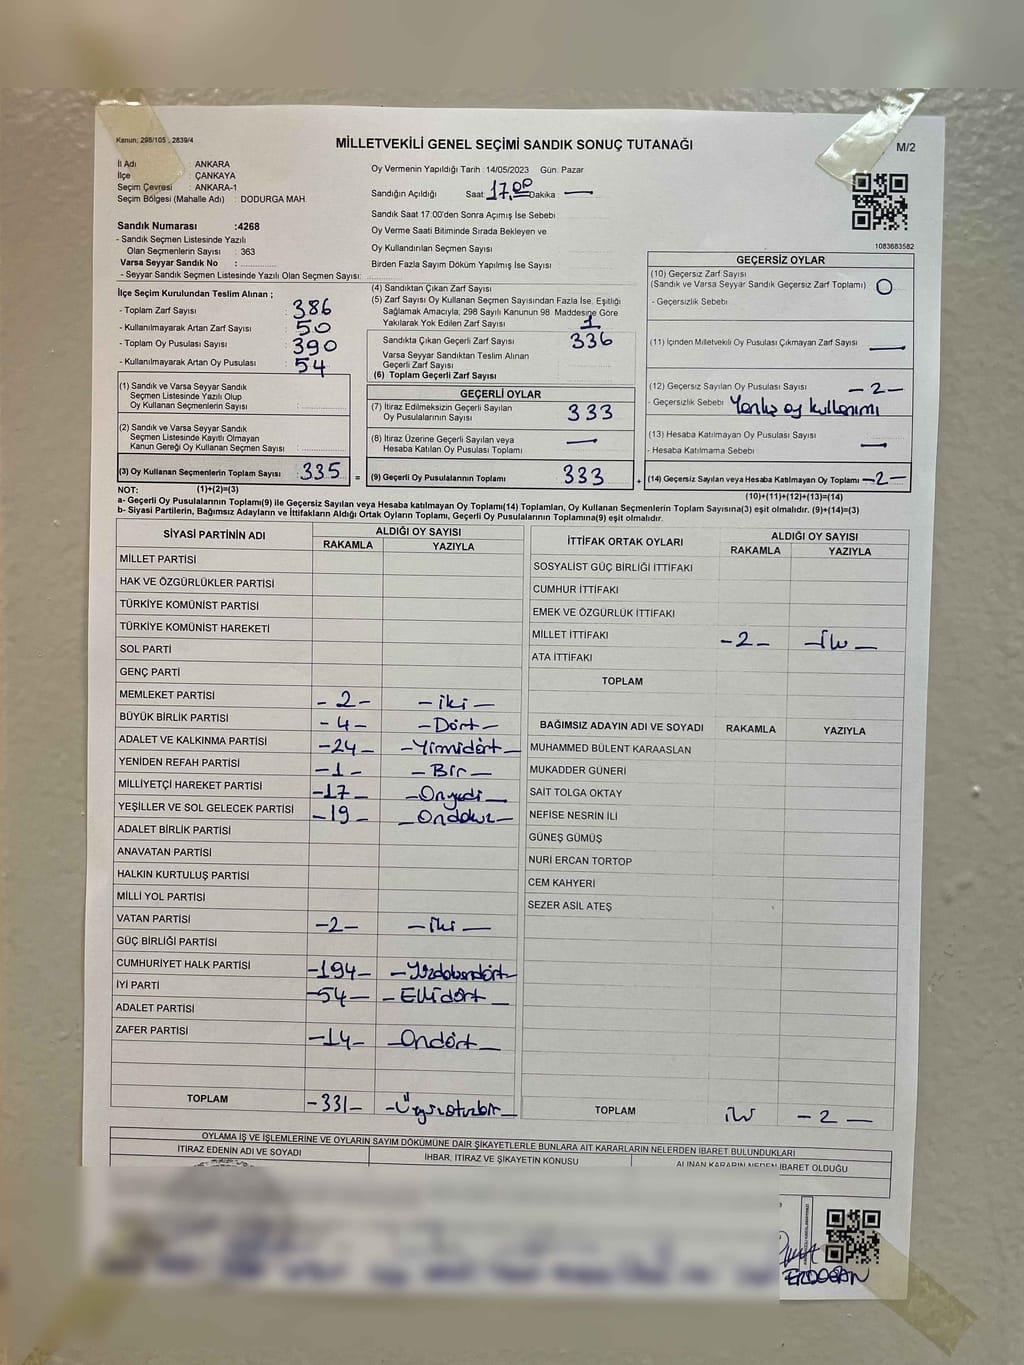 Kanun: 298/105 , 2839/4
MİLLETVEKİLİ GENEL SEÇİMİ SANDIK SONUÇ TUTANAĞI
M/2
İl Adı : ANKARA
İlçe : ÇANKAYA
Seçim Çevresi : ANKARA-1
Seçim Bölgesi (Mahalle Adı) : DODURGA MAH.
Sandık Numarası :4268
- Sandık Seçmen Listesinde Yazılı
Olan Seçmenlerin Sayısı : 363
Varsa Seyyar Sandık No :
- Seyyar Sandık Seçmen Listesinde Yazılı Olan Seçmen Sayısı:
Oy Vermenin Yapıldığı Tarih : 14/05/2023 Gün: Pazar
Sandığın Açıldığı Saat: 17.00 Dakika : —
Sandık Saat 17:00'den Sonra Açımış İse Sebebi
Oy Verme Saati Bitiminde Sırada Bekleyen ve
Oy Kullandırılan Seçmen Sayısı
Birden Fazla Sayım Döküm Yapılmış İse Sayısı
1083683582
İlçe Seçim Kurulundan Teslim Alınan ;
- Toplam Zarf Sayısı : 386
- Kullanılmayarak Artan Zarf Sayısı : 50
- Toplam Oy Pusulası Sayısı : 390
- Kullanılmayarak Artan Oy Pusulası : 54
(1) Sandık ve Varsa Seyyar Sandık
Seçmen Listesinde Yazılı Olup
Oy Kullanan Seçmenlerin Sayısı :
(2) Sandık ve Varsa Seyyar Sandık
Seçmen Listesinde Kayıtlı Olmayan
Kanun Gereği Oy Kullanan Seçmen Sayısı :
(3) Oy Kullanan Seçmenlerin Toplam Sayısı : 335 =
(4) Sandıktan Çıkan Zarf Sayısı
(5) Zarf Sayısı Oy Kullanan Seçmen Sayısından Fazla İse, Eşitliği
Sağlamak Amacıyla, 298 Sayılı Kanunun 98 Maddesine Göre
Yakılarak Yok Edilen Zarf Sayısı 1
Sandıkta Çıkan Geçerli Zarf Sayısı 336
Varsa Seyyar Sandıktan Teslim Alınan
Geçerli Zarf Sayısı
(6) Toplam Geçerli Zarf Sayısı
GEÇERLİ OYLAR
(7) İtiraz Edilmeksizin Geçerli Sayılan
Oy Pusulalarının Sayısı 333
(8) İtiraz Üzerine Geçerli Sayılan veya
Hesaba Katılan Oy Pusulası Toplamı —
(9) Geçerli Oy Pusulalarının Toplamı 333 +
GEÇERSİZ OYLAR
(10) Geçersiz Zarf Sayısı
(Sandık ve Varsa Seyyar Sandık Geçersiz Zarf Toplamı) 0
- Geçersizlik Sebebi
(11) İçinden Milletvekili Oy Pusulası Çıkmayan Zarf Sayısı —
(12) Geçersiz Sayılan Oy Pusulası Sayısı -2-
- Geçersizlik Sebebi Yanlış oy kullanımı
(13) Hesaba Katılmayan Oy Pusulası Sayısı —
- Hesaba Katılmama Sebebi
(14) Geçersiz Sayılan veya Hesaba Katılmayan Oy Toplamı -2-
NOT: (1)+(2)=(3)
(10)+(11)+(12)+(13)=(14)
a- Geçerli Oy Pusulalarının Toplamı(9) ile Geçersiz Sayılan veya Hesaba katılmayan Oy Toplamı(14) Toplamları, Oy Kullanan Seçmenlerin Toplam Sayısına(3) eşit olmalıdır. (9)+(14)=(3)
b- Siyasi Partilerin, Bağımsız Adayların ve İttifakların Aldığı Ortak Oyların Toplamı, Geçerli Oy Pusulalarının Toplamına(9) eşit olmalıdır.
SİYASİ PARTİNİN ADI ALDIĞI OY SAYISI
RAKAMLA YAZIYLA
MİLLET PARTİSİ
HAK VE ÖZGÜRLÜKLER PARTİSİ
TÜRKİYE KOMÜNİST PARTİSİ
TÜRKİYE KOMÜNİST HAREKETİ
SOL PARTİ
GENÇ PARTİ
MEMLEKET PARTİSİ -2- -iki-
BÜYÜK BİRLİK PARTİSİ -4- -Dört-
ADALET VE KALKINMA PARTİSİ -24- -Yirmidört-
YENİDEN REFAH PARTİSİ -1- -Bir-
MİLLİYETÇİ HAREKET PARTİSİ -17- -Onyedi-
YEŞİLLER VE SOL GELECEK PARTİSİ -19- -Ondokuz-
ADALET BİRLİK PARTİSİ
ANAVATAN PARTİSİ
HALKIN KURTULUŞ PARTİSİ
MİLLİ YOL PARTİSİ
VATAN PARTİSİ -2- -iki-
GÜÇ BİRLİĞİ PARTİSİ
CUMHURİYET HALK PARTİSİ -194- -Yüzdoksandört-
İYİ PARTİ -54- -Ellidört-
ADALET PARTİSİ
ZAFER PARTİSİ -14- -Ondört-
TOPLAM -331- -Üçyüzotuzbir-
İTTİFAK ORTAK OYLARI ALDIĞI OY SAYISI
RAKAMLA YAZIYLA
SOSYALİST GÜÇ BİRLİĞİ İTTİFAKI
CUMHUR İTTİFAKI
EMEK VE ÖZGÜRLÜK İTTİFAKI
MİLLET İTTİFAKI -2- -iki-
ATA İTTİFAKI
TOPLAM
BAĞIMSIZ ADAYIN ADI VE SOYADI RAKAMLA YAZIYLA
MUHAMMED BÜLENT KARAASLAN
MUKADDER GÜNERİ
SAİT TOLGA OKTAY
NEFİSE NESRİN İLİ
GÜNEŞ GÜMÜŞ
NURİ ERCAN TORTOP
CEM KAHYERİ
SEZER ASİL ATEŞ
TOPLAM iki -2-
OYLAMA İŞ VE İŞLEMLERİNE VE OYLARIN SAYIM DÖKÜMÜNE DAİR ŞİKAYETLERLE BUNLARA AİT KARARLARIN NELERDEN İBARET BULUNDUKLARI
İTİRAZ EDENİN ADI VE SOYADI İHBAR, İTİRAZ VE ŞİKAYETİN KONUSU ALINAN KARARIN NEDEN İBARET OLDUĞU
ERDOĞAN